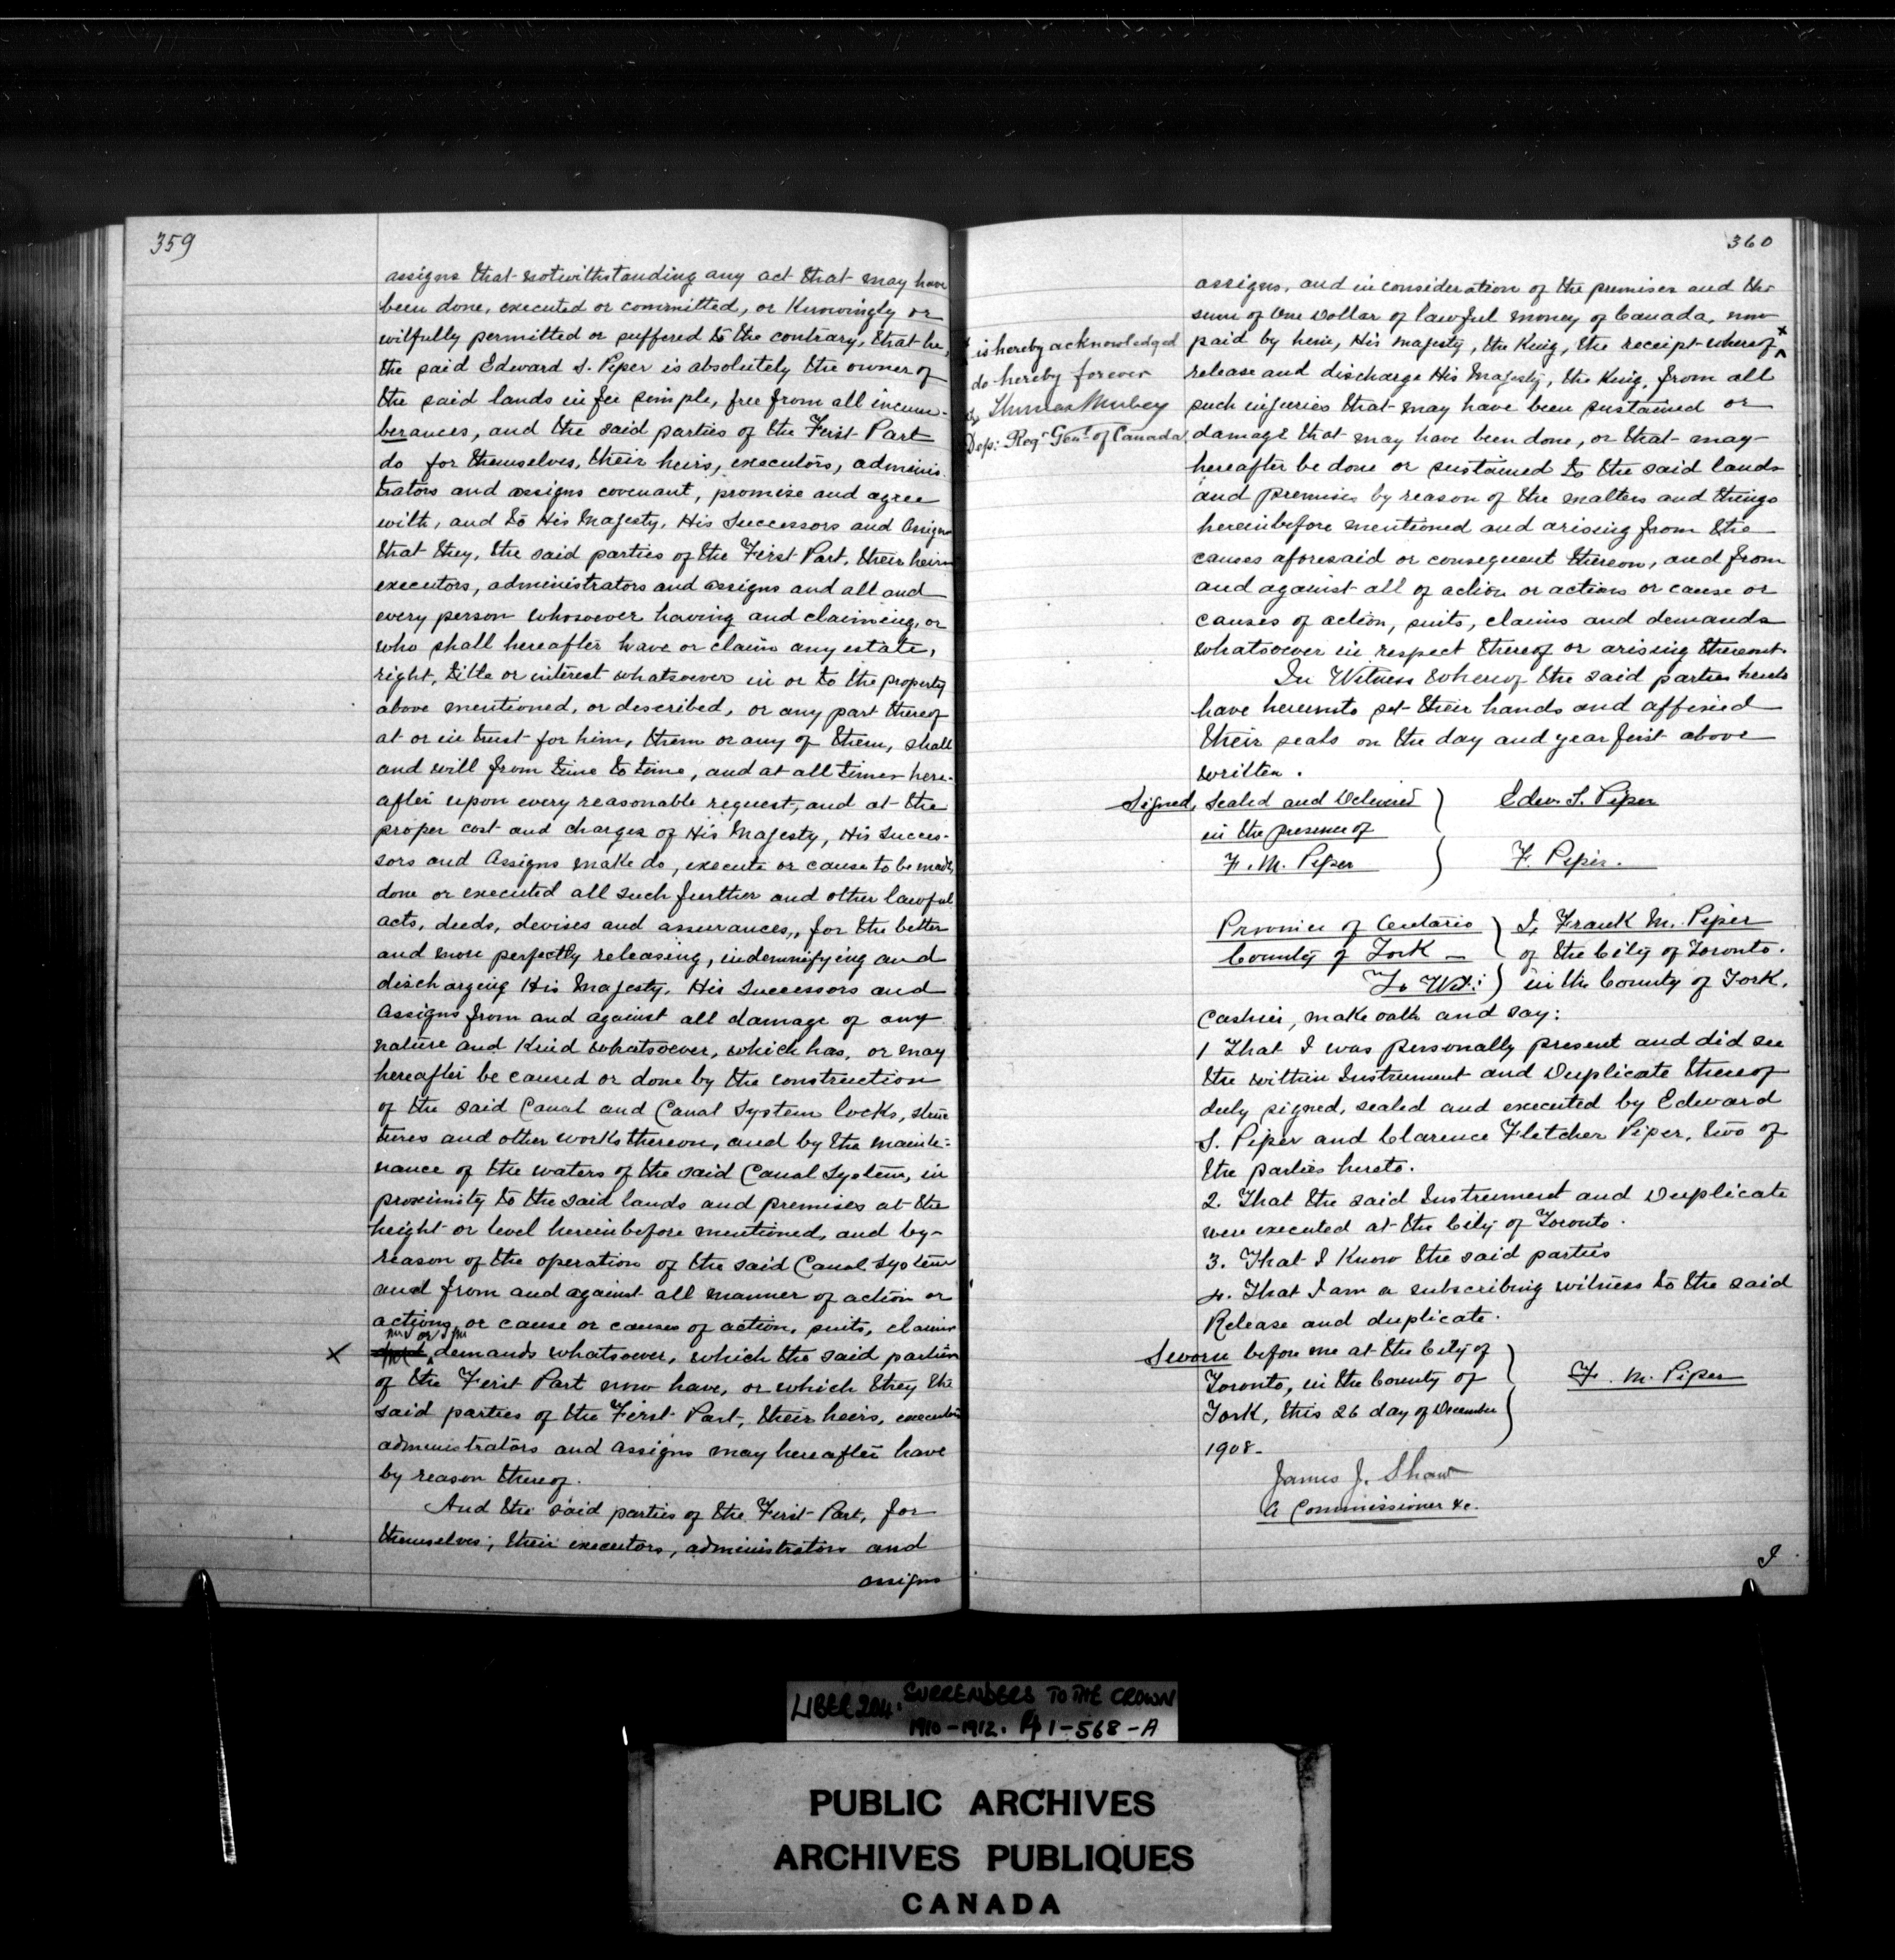 359
assigns that notwithstanding any act that may have
been done, executed or committed, or Knowingly or
wilfully permitted or suffered to the contrary, that he,
the said Edward S. Piper is absolutely the owner of
the said lands in fee simple, free from all incum-
berances, and the said parties of the First Part
do for themselves, their heirs, executors, adminis-
trators and assigns covenant, promise and agree
with, and to His Majesty, His Successors and Assigns
that they, the said parties of the First Part, their heirs
executors, administrators and assigns and all and
every person whosoever having and claiming, or
who shall hereafter have or claim any estate,
right, title or interest whatsoever in or to the property
above mentioned, or described, or any part thereof
at or in trust for him, them or any of them, shall
and will from time to time, and at all times here-
after upon every reasonable request, and at the
proper cost and charges of His Majesty, His Succes-
sors and Assigns make do, execute or cause to be made,
done or executed all such further and other lawful
acts, deeds, devises and assurances, for the better
and more perfectly releasing, indemnifying and
discharging His Majesty, His Successors and
Assigns from and against all damage of any
nature and Kind whatsoever, which has, or may
hereafter be caused or done by the construction
of the said Canal and Canal System locks, struc
tures and other works thereon, and by the mainte-
nance of the waters of the said Canal System, in
proximity to the said lands and premises at the
height or level hereinbefore mentioned, and by
reason of the operation of the said Canal System
and from and against all manner of action or
actions, or cause or causes of action, suits, claims
x or demands whatsoever, which the said parties
of the First Part now have, or which they the
said parties of the First Part, their heirs, executors
administrators and assigns may hereafter have
by reason thereof.
And the said parties of the First Part, for
themselves, their executors, administrators and
assigns
360
assigns, and in consideration of the premises and the
sum of One Dollar of lawful money of Canada, now
paid by him, His Majesty, the King, the receipt whereof x
release and discharge His Majesty, the King, from all
such injuries that may have been sustained or
damage that may have been done, or that may
hereafter be done or sustained to the said lands
and premises by reason of the matters and things
hereinbefore mentioned and arising from the
causes aforesaid or consequent thereon, and from
and against all of action or actions or cause or
causes of action, suits, claims and demands
whatsoever in respect thereof or arising thereout.
is hereby acknowledged
do hereby forever
Dep: Regr Genl of Canada
In Witness Whereof the said parties hereto
have hereunto set their hands and affixed
their seals on the day and year first above
written.
Signed, Sealed and Delivered
in the presence of
F. M. Piper
Edw. S. Piper
F. Piper.
Province of Ontario
County of York
To Wit:
I, Frank M. Piper
of the City of Toronto.
in the County of York,
Cashier, make oath and say:
1 That I was personally present and did see
the within Instrument and Duplicate thereof
duly signed, sealed and executed by Edward
S. Piper and Clarence Fletcher Piper, two of
the parties hereto.
2. That the said Instrument and Duplicate
were executed at the City of Toronto.
3. That I Know the said parties
4. That I am a subscribing witness to the said
Release and duplicate.
Sworn before me at the City of
Toronto, in the County of
York, this 26 day of December
1908.
F. M. Piper
James J. Shaw
A Commissioner &c.
I
LIBER 204. SURRENDERS TO THE CROWN
1910-1912. Pp 1-568-A
PUBLIC ARCHIVES
ARCHIVES PUBLIQUES
CANADA